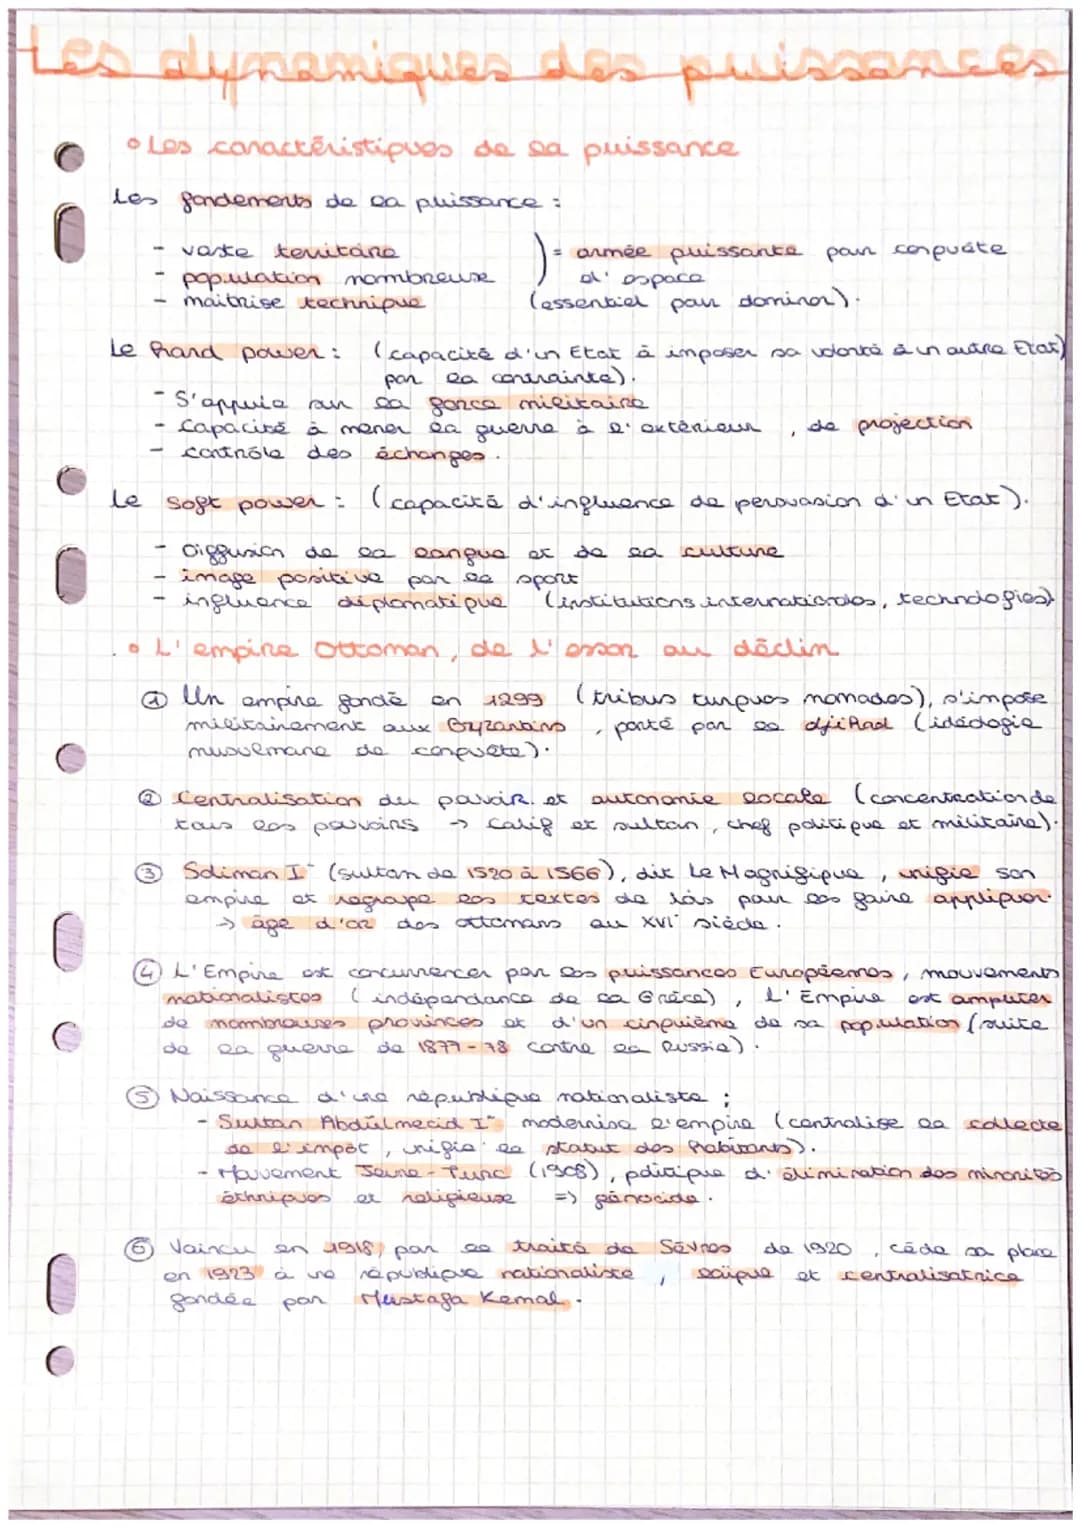 Les dynamiques des puissances
• Les caractéristiques de la puissance
Les fondements de la puissance :
- vaste territoire ) = armée puissante pour conquête
- population nombreuse ) d'espace
- maîtrise technique (essentiel pour dominer).
Le hard power : (capacité d'un Etat à imposer sa volonté à un autre Etat)
par la contrainte).
- S'appuie sur la force militaire
- Capacité à mener la guerre à l'extérieur, de projection
- contrôle des échanges.
Le soft power : (capacité d'influence de persuasion d'un Etat).
- Diffusion de la langue et de la culture
- image positive par le sport
- influence diplomatique (institutions internationales, technologies)
• L'empire Ottoman, de l'essor au déclin
① Un empire fondé en 1299 (tribus turques nomades), s'impose
militairement aux Byzantins, porté par le djihad (idéologie
musulmane de conquête).
② Centralisation du pouvoir et autonomie locale (concentration de
tous les pouvoirs → Calif et sultan, chef politique et militaire).
③ Soliman Ier (sultan de 1520 à 1566), dit Le Magnifique, unifie son
empire et regroupe les textes de lois pour les faire appliquer.
→ âge d'or des ottomans au XVIe siècle.
④ L'Empire est concurrencer par les puissances Européennes, mouvements
nationalistes (indépendance de la Grèce), L'Empire est amputer
de nombreuses provinces et d'un cinquième de sa population (suite
de la guerre de 1877-78 contre la Russie).
⑤ Naissance d'une république nationaliste ;
- Sultan Abdülmecid Ier modernise l'empire (centralise la collecte
de l'impôt, unifie le statut des habitants).
- Mouvement Jeune-Turc (1908), politique d'élimination des minorités
ethniques et religieuse => génocide.
⑥ Vaincu en 1918, par le traité de Sèvres de 1920, cède sa place
en 1923 à une république nationaliste, laïque et centralisatrice
fondée par Mustafa Kemal.